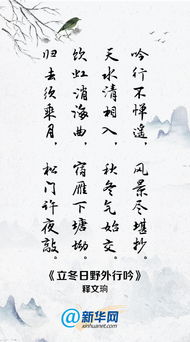 吟行不惮遥，风景尽堪抄。
天水清相入，秋冬气始交。
饮虹消海曲，宿雁下塘坳。
归去须乘月，松门许夜敲。
《立冬日野外行吟》
释文珦
@新华网
xinhuanet.com